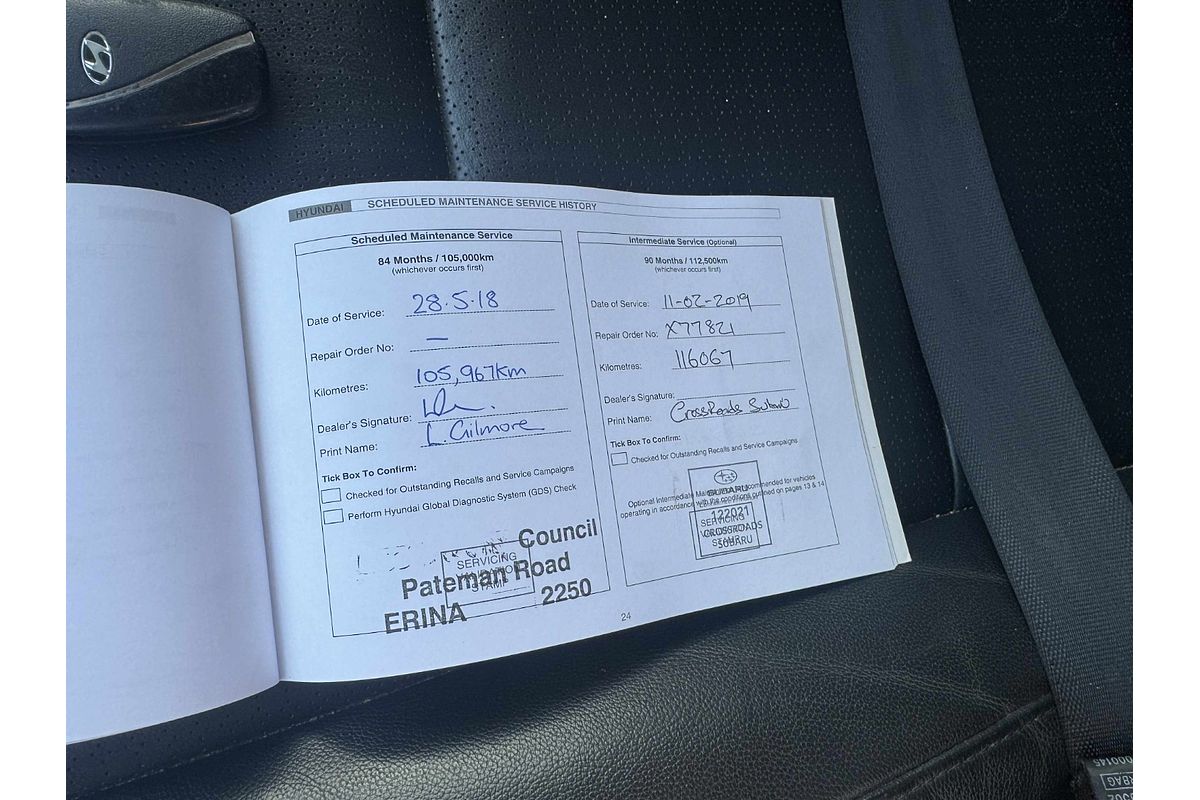 HYUNDAI SCHEDULED MAINTENANCE SERVICE HISTORY
Scheduled Maintenance Service
84 Months / 105,000km
(whichever occurs first)
Date of Service: 28.5.18
Repair Order No: —
Kilometres: 105,967km
Dealer's Signature:
Print Name: L. Gilmore
Tick Box To Confirm:
Checked for Outstanding Recalls and Service Campaigns
Perform Hyundai Global Diagnostic System (GDS) Check
Council
SERVICING
STAMP
Pateman Road
ERINA 2250
Intermediate Service (Optional)
90 Months / 112,500km
(whichever occurs first)
Date of Service: 11-02-2019
Repair Order No: X77821
Kilometres: 116067
Dealer's Signature:
Print Name: CrossRoads Subaru
Tick Box To Confirm:
Checked for Outstanding Recalls and Service Campaigns
Optional Intermediate Maintenance recommended for vehicles
operating in accordance with the conditions outlined on pages 13 & 14
SUBARU
122021
SERVICING
CROSSROADS
STAMP
SUBARU
24
000145